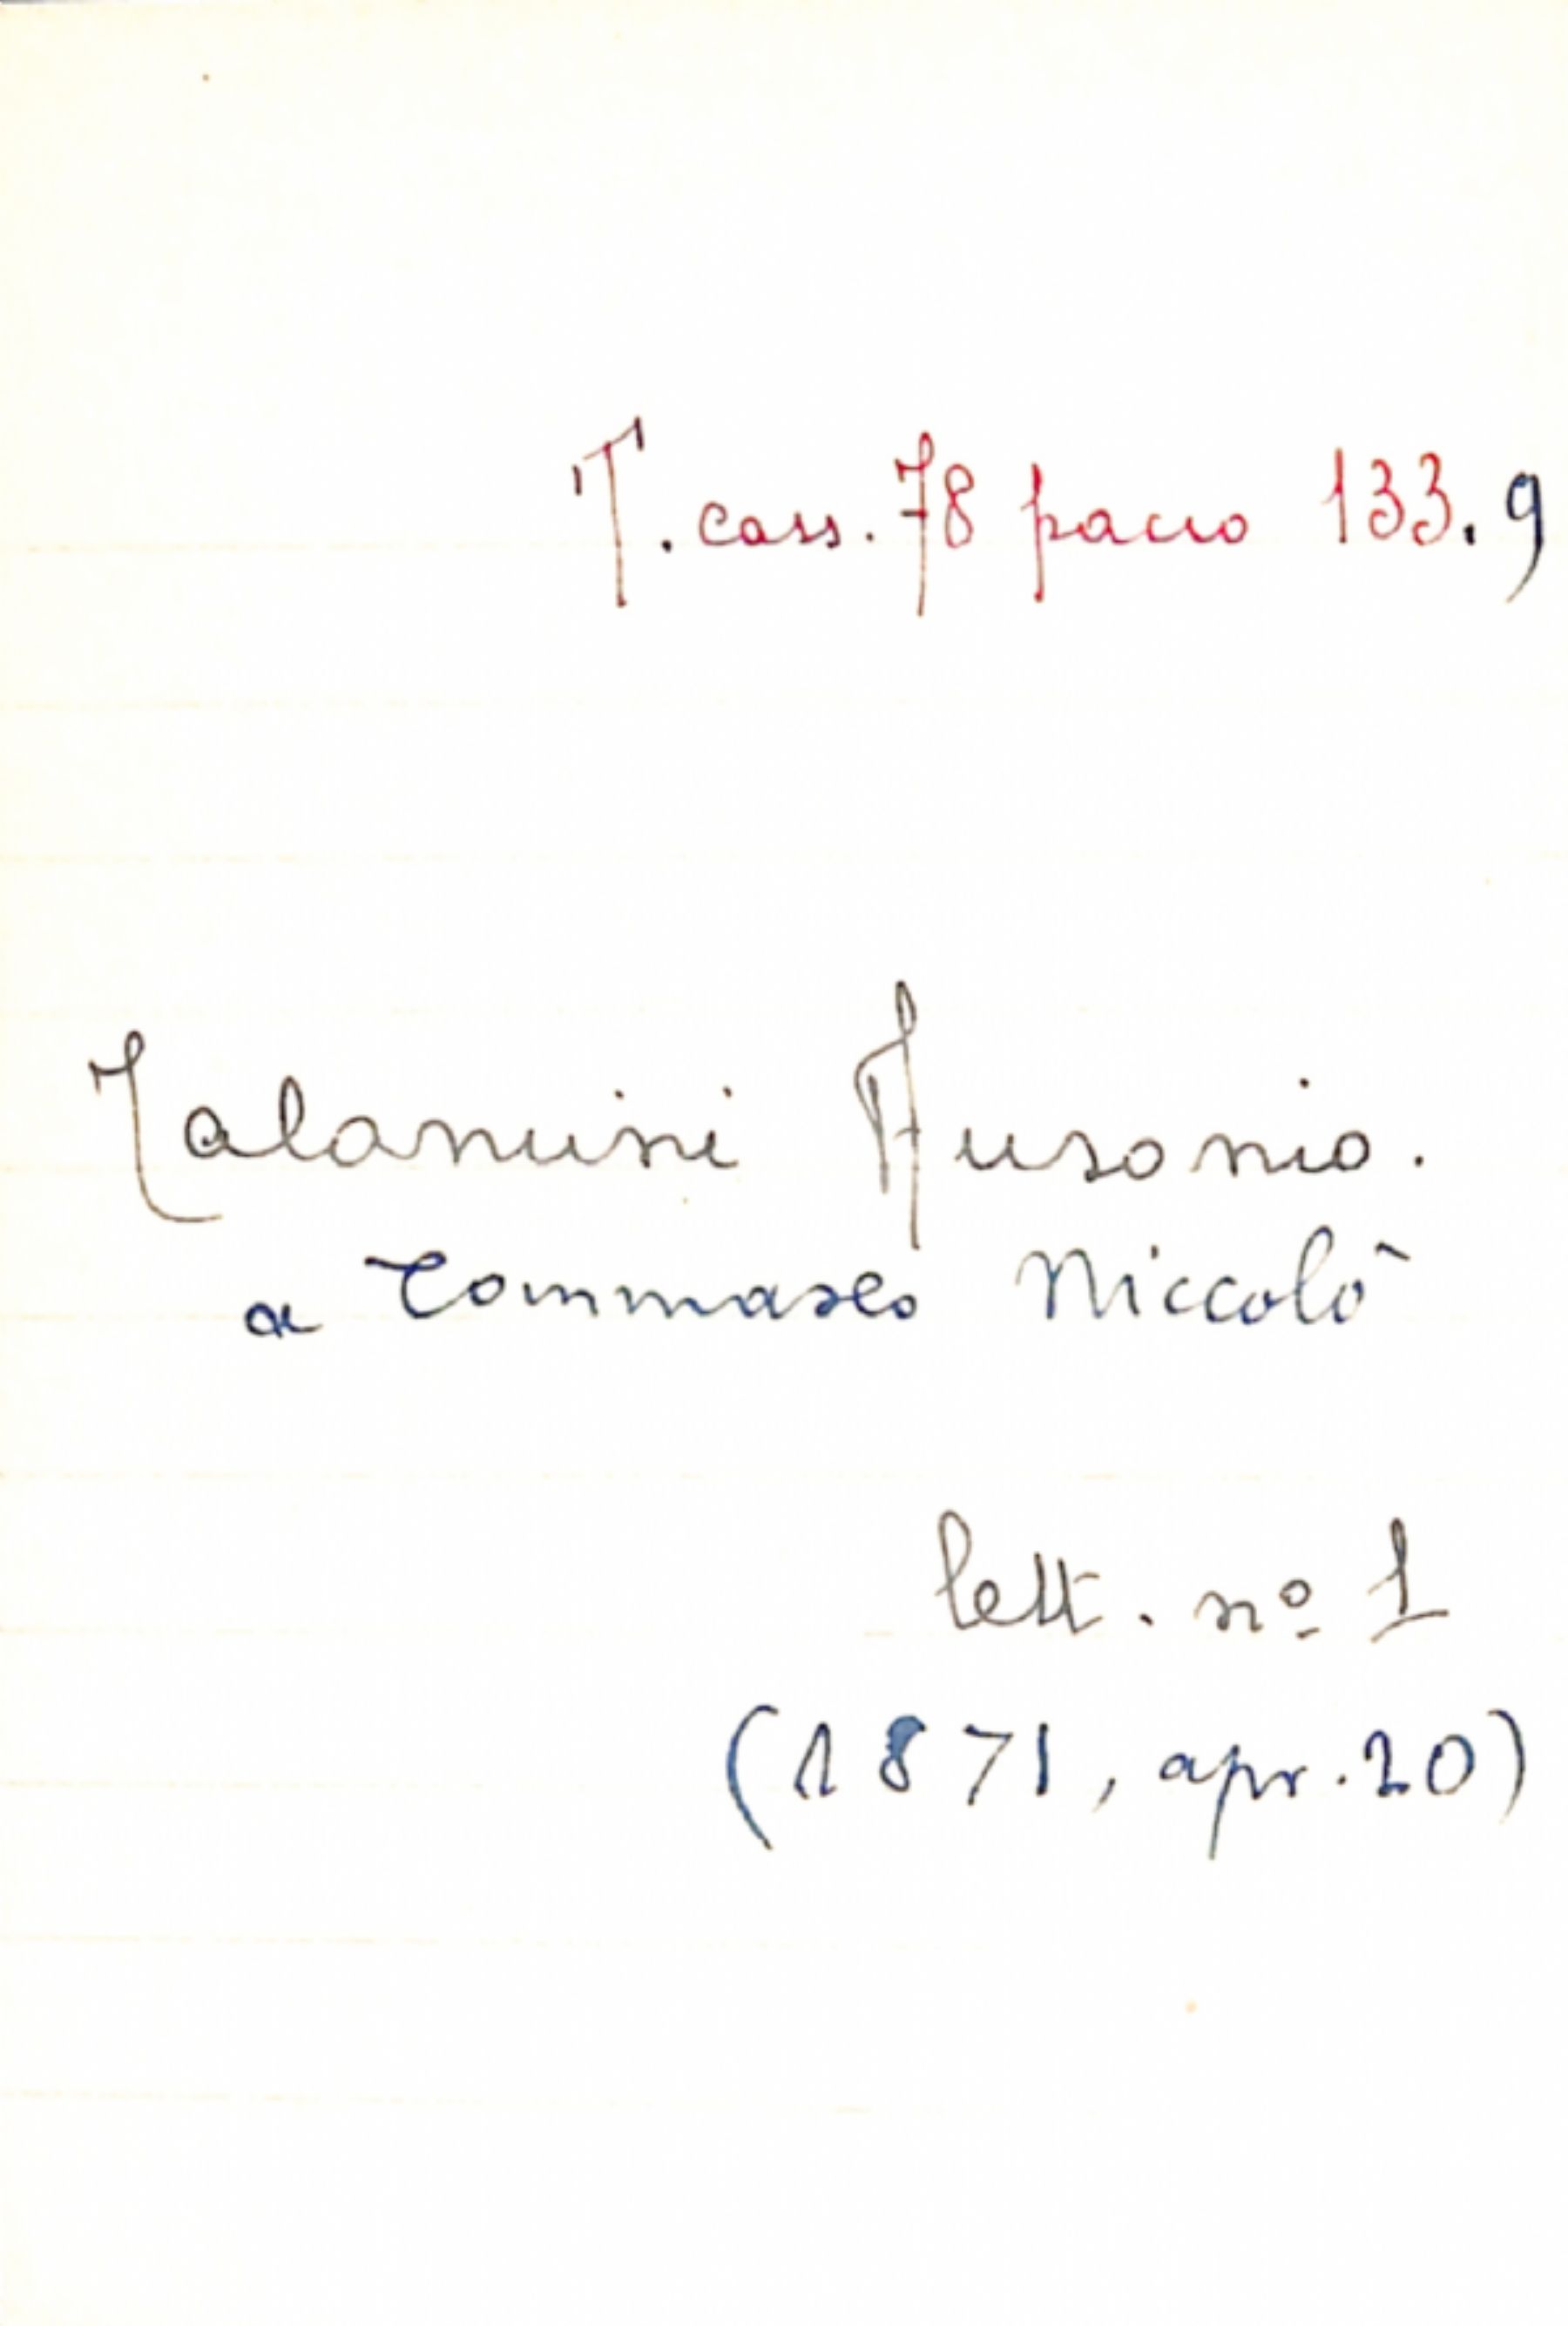 T. cass. 78 pacco 133. 9
Talamini Ausonio.
a Tommaseo Niccolò
lett. nº 1
(1871, apr. 20)